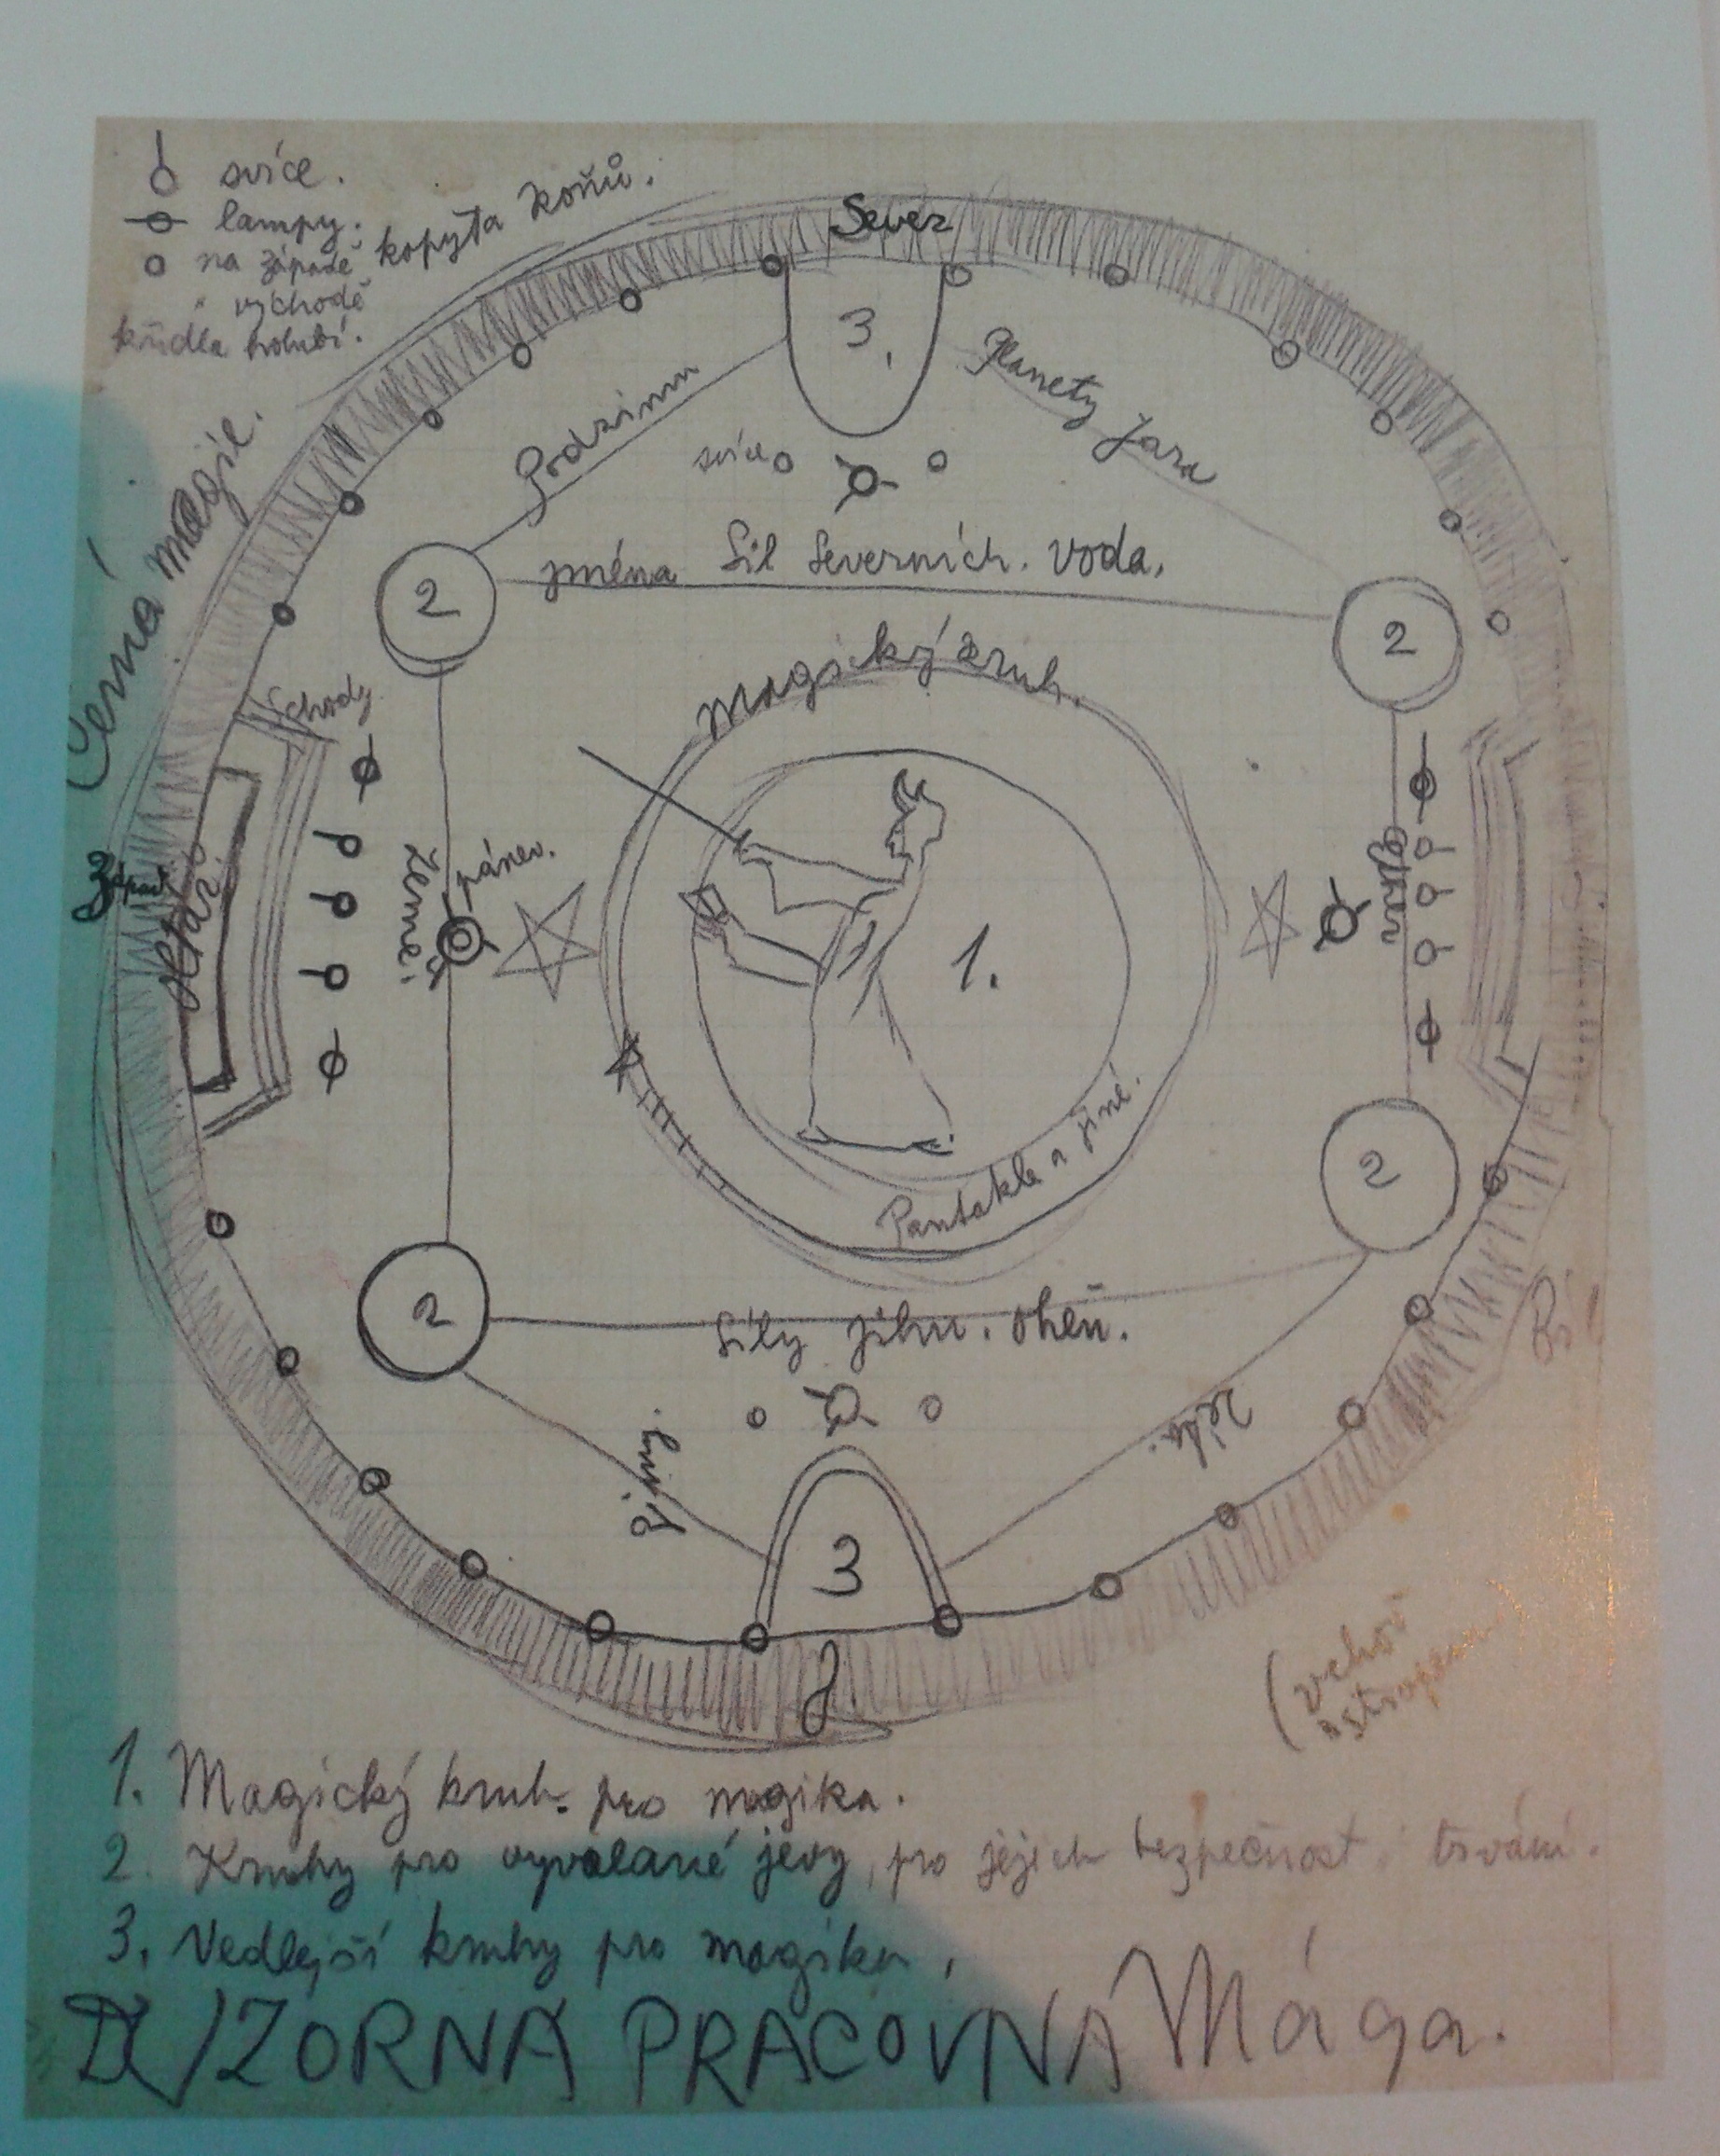 svíce.
lampy.
na západě kopyta koňů.
" východě
křídla holubí.
Sever
3.
Planety Jara
Podzimu
svíce
Černá magie.
jména Sil Severních. Voda.
2
2
Magický kruh.
Schody
Západ
Oltář
Země
pánev.
1.
Pantakle a jiné.
2
2
Síly jihu. Oheň.
Zimy.
Léta.
3
J.
(vchod
1. Magický kruh. pro magika.
2. Kruhy pro vyvolané jevy, pro jejich bezpečnost i trvání.
3. Vedlejší kruhy pro magika.
VZORNÁ PRACOVNA Mága.